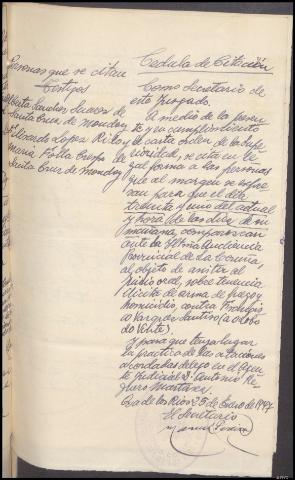 Personas que se citan
Testigos
Sanchez Suarez de
Santa Cruz de Mondoy
Eduardo Lopez
Maria Crespo
Santa Cruz de Mondoy
Cedula de Citación
Como Secretario de
este Juzgado.
A medio de la presen
te y en cumplimiento
de carta orden de la Supe
rioridad, se cita en le
gal forma a las personas
que al margen se expre
san para que el dia
treinta y uno del actual
y hora de las diez de su
mañana, comparezcan
ante la Iltma Audiencia
Provincial de La Coruña,
al objeto de asistir al
juicio oral, sobre tenencia
ilicita de arma de fuego y
homicidio, contra
Vazquez Santiso (a Lobo
do Vente).
Y para que tenga lugar
la practica de las citaciones
acordadas delego en el Agen
te Judicial D. Antonio Re
guero Martinez
Oza de los Rios 25 de Enero de 1947
El Secretario